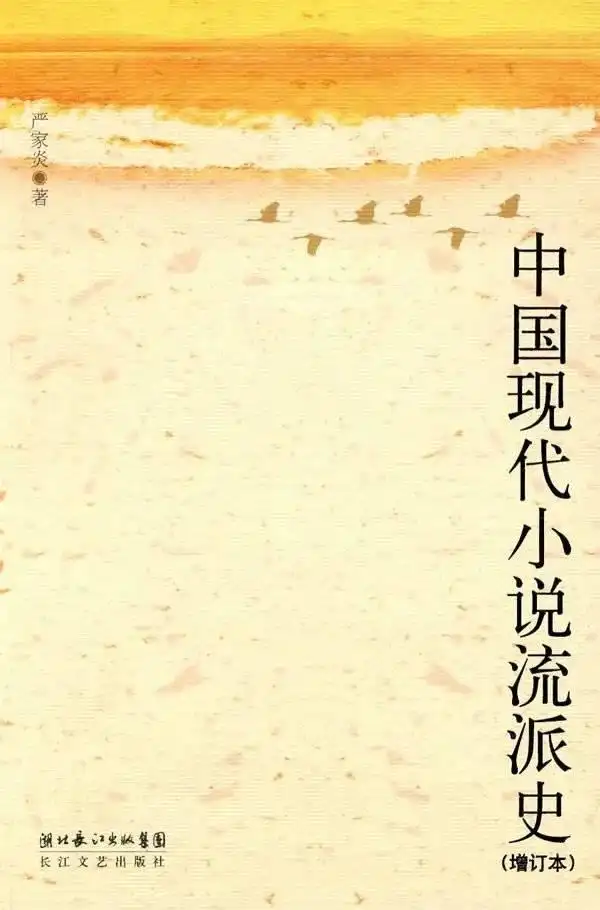 严家炎◉著
中国现代小说流派史
(增订本)
湖北长江出版集团
长江文艺出版社